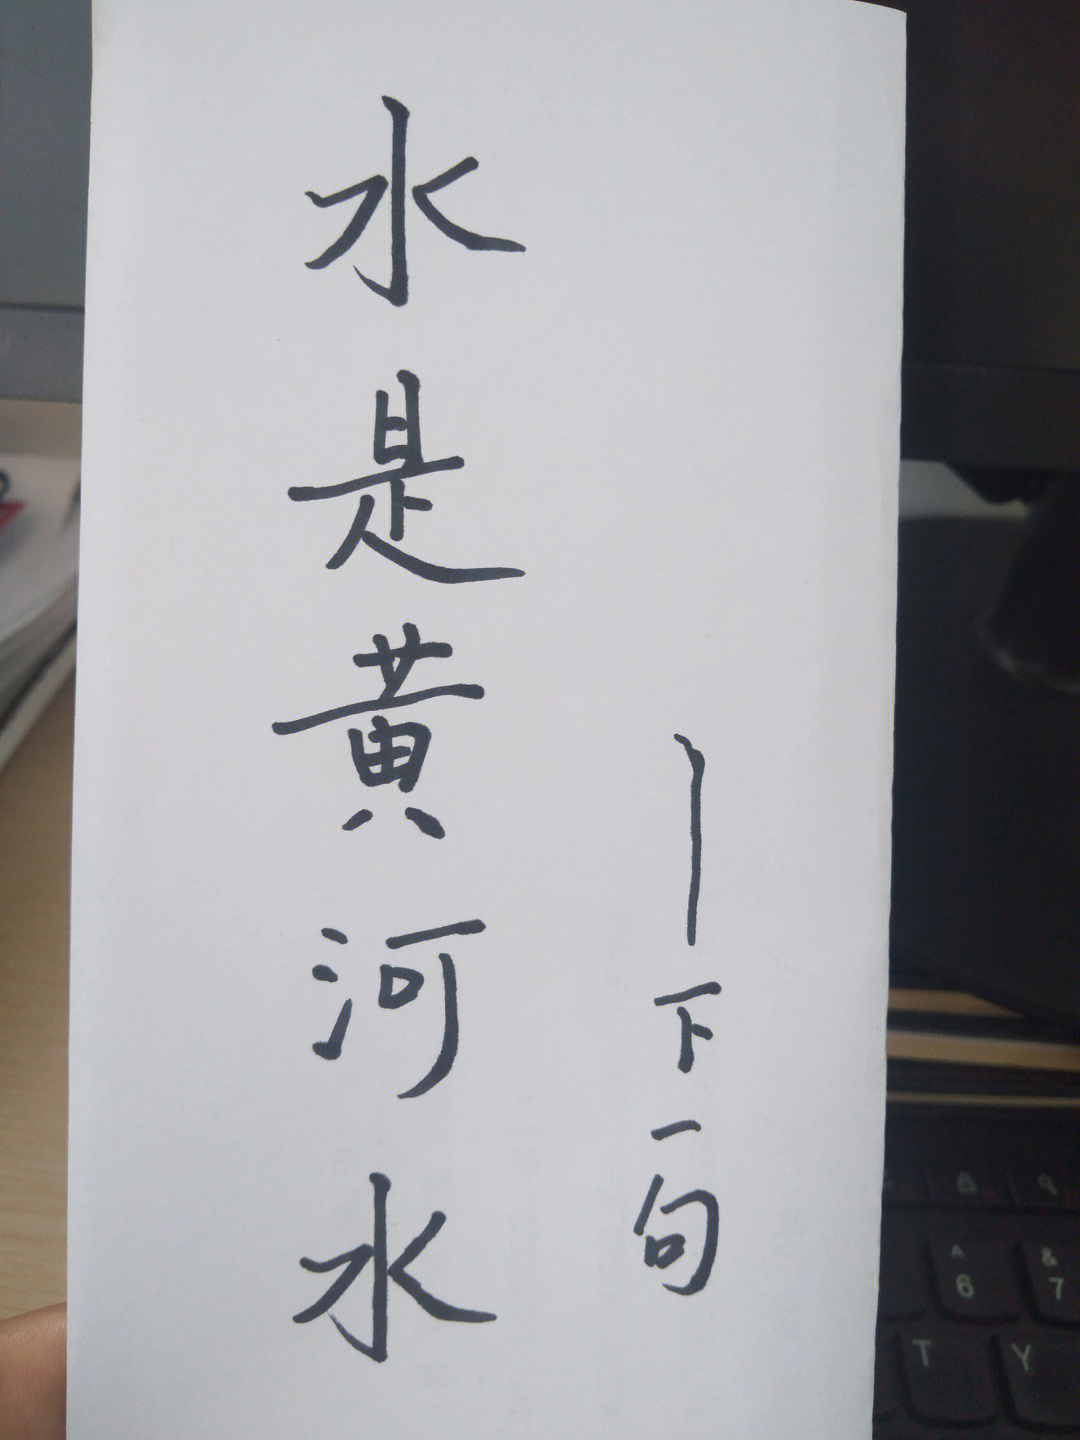 水是黄河水
—下一句
^
6
&
7
T
Y